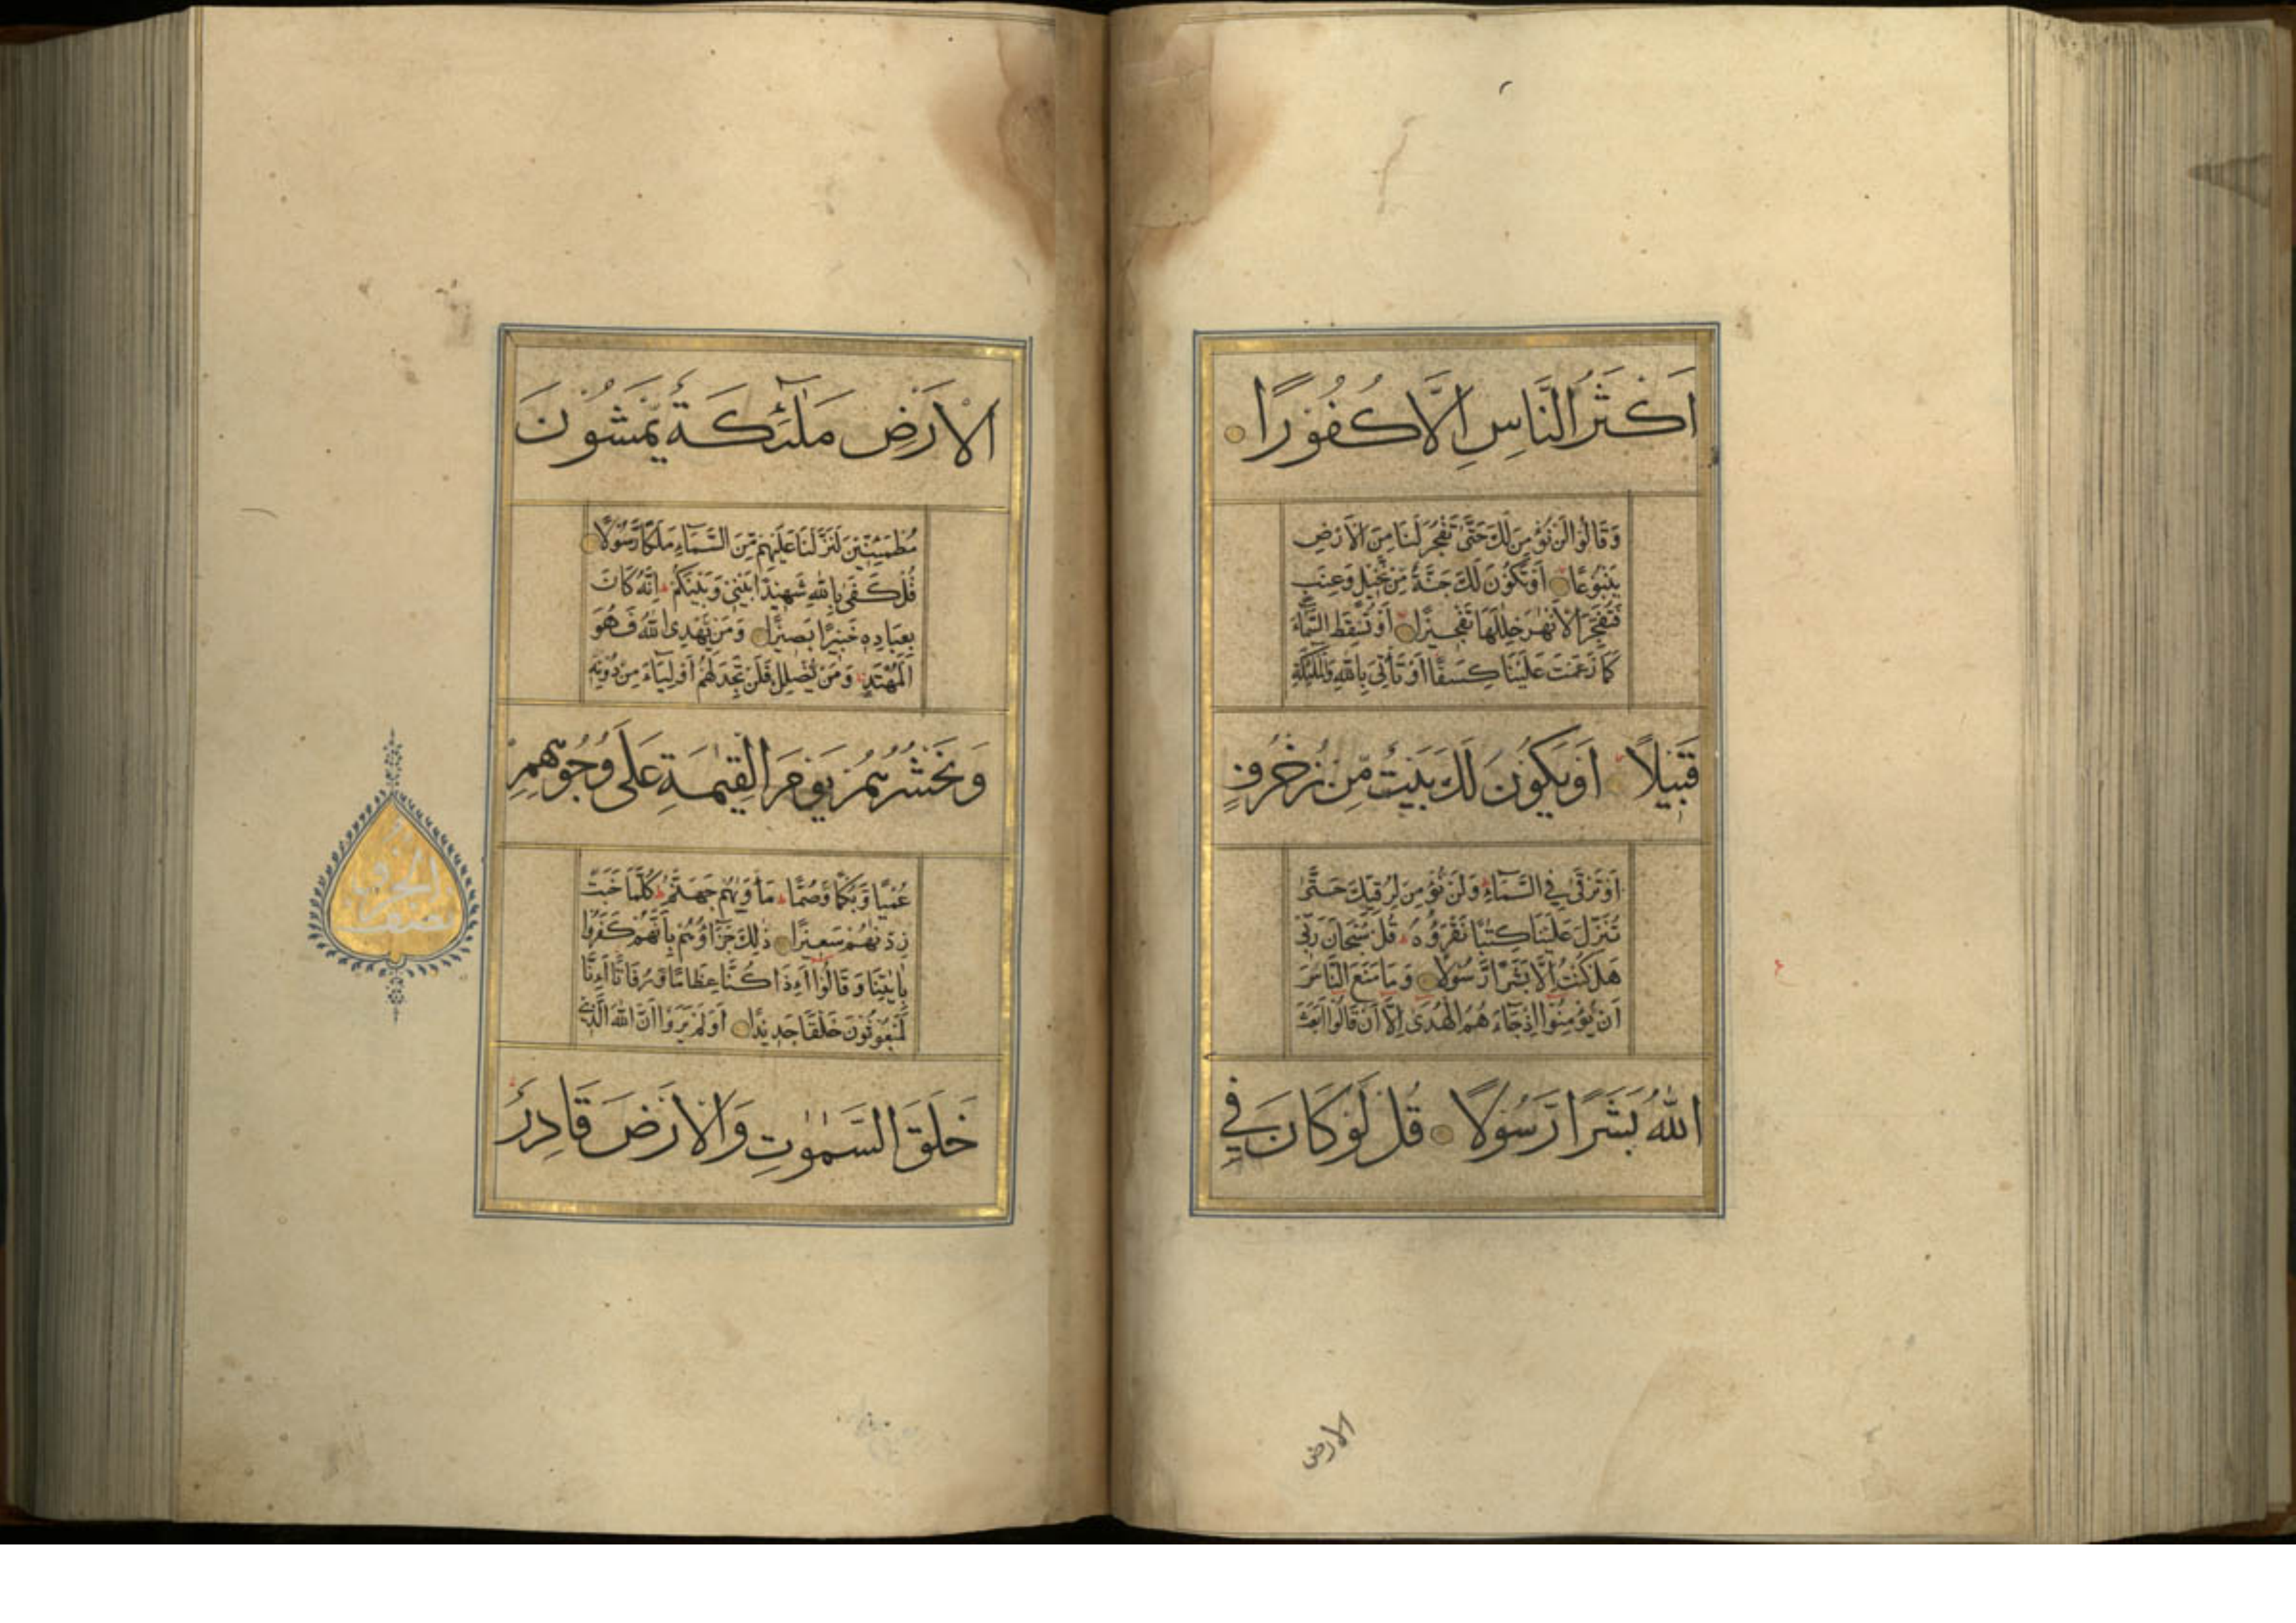 اَكْثَرُ النَّاسِ اِلَّا كُفُوْرًا
وَقَالُوْا لَنْ نُؤْمِنَ لَكَ حَتّٰى تَفْجُرَ لَنَا مِنَ الْاَرْضِ
يَنْبُوْعًا اَوْ تَكُوْنَ لَكَ جَنَّةٌ مِّنْ نَّخِيْلٍ وَّعِنَبٍ
فَتُفَجِّرَ الْاَنْهٰرَ خِلٰلَهَا تَفْجِيْرًا اَوْ تُسْقِطَ السَّمَآءَ
كَمَا زَعَمْتَ عَلَيْنَا كِسَفًا اَوْ تَأْتِيَ بِاللّٰهِ وَالْمَلٰٓئِكَةِ
قَبِيْلًا اَوْ يَكُوْنَ لَكَ بَيْتٌ مِّنْ زُخْرُفٍ
اَوْ تَرْقٰى فِي السَّمَآءِ وَلَنْ نُؤْمِنَ لِرُقِيِّكَ حَتّٰى
تُنَزِّلَ عَلَيْنَا كِتٰبًا نَقْرَؤُهُ قُلْ سُبْحَانَ رَبِّيْ
هَلْ كُنْتُ اِلَّا بَشَرًا رَّسُوْلًا وَمَا مَنَعَ النَّاسَ
اَنْ يُؤْمِنُوْا اِذْ جَآءَ هُمُ الْهُدٰى اِلَّا اَنْ قَالُوْا اَبَعَثَ
اللّٰهُ بَشَرًا رَّسُوْلًا قُلْ لَوْ كَانَ فِي
الارض
الْاَرْضِ مَلٰٓئِكَةٌ يَّمْشُوْنَ
مُطْمَئِنِّيْنَ لَنَزَّلْنَا عَلَيْهِمْ مِّنَ السَّمَآءِ مَلَكًا رَّسُوْلًا
قُلْ كَفٰى بِاللّٰهِ شَهِيْدًا بَيْنِيْ وَبَيْنَكُمْ اِنَّهُ كَانَ
بِعِبَادِهٖ خَبِيْرًا بَصِيْرًا وَمَنْ يَّهْدِي اللّٰهُ فَهُوَ
الْمُهْتَدِ وَمَنْ يُّضْلِلْ فَلَنْ تَجِدَ لَهُمْ اَوْلِيَآءَ مِنْ دُوْنِهٖ
وَنَحْشُرُهُمْ يَوْمَ الْقِيٰمَةِ عَلٰى وُجُوْهِهِمْ
عُمْيًا وَّبُكْمًا وَّصُمًّا مَأْوٰىهُمْ جَهَنَّمُ كُلَّمَا خَبَتْ
زِدْنٰهُمْ سَعِيْرًا ذٰلِكَ جَزَآؤُهُمْ بِاَنَّهُمْ كَفَرُوْا
بِاٰيٰتِنَا وَقَالُوْا ءَاِذَا كُنَّا عِظَامًا وَّرُفَاتًا ءَاِنَّا
لَمَبْعُوْثُوْنَ خَلْقًا جَدِيْدًا اَوَلَمْ يَرَوْا اَنَّ اللّٰهَ الَّذِيْ
خَلَقَ السَّمٰوٰتِ وَالْاَرْضَ قَادِرٌ